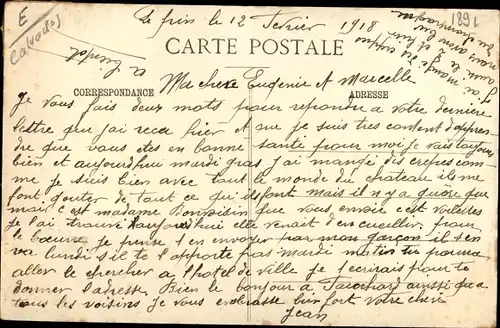 E
Calvados
Le frin le 12 Fevrier 1918
189
CARTE POSTALE
CORRESPONDANCE
ADRESSE
Ma chere Eugenie et Marcelle
Je vous fais deux mots pour repondre a votre derniere
lettre que j'ai recu hier et que je suis tres content d'appren
dre que vous etes en bonne santé pour moi je vais toujours
bien et aujourd'hui mardi gras j'ai mangé des crepes com
me je suis bien avec tout le monde du chateau ils me
font gouter de tout ce qui ils font mais il n'y a guère que
moi c'est madame que vous envoie c'est violettes
je l'ai trouvé aujourd'hui elle venait d'en cueillir pour
le je pense t'en envoyer par mon garçon il s'en
va lundi s'il te l'apporte pas mardi matin tu pourra
aller le chercher a l'hotel de ville je t'ecrirais pour te
donner l'adresse. Bien le bonjour a aussi qu a
tous les voisins je vous embrasse bien fort votre cheri
Jean